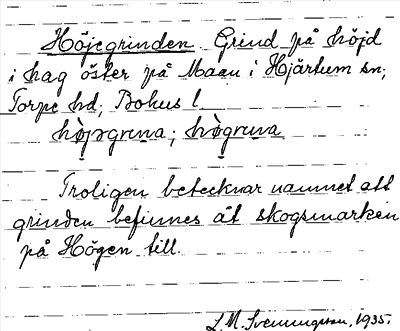 Höjegrinden Grind på höjd
i hag öster på Maan i Hjärtum sn;
Torpe hd; Bohus l.
hòjəgrɩna; hògrɩna
Troligen betecknar namnet att
grinden befinnes åt skogsmarken
på Högen till.
L. M. Svenungsson, 1935.